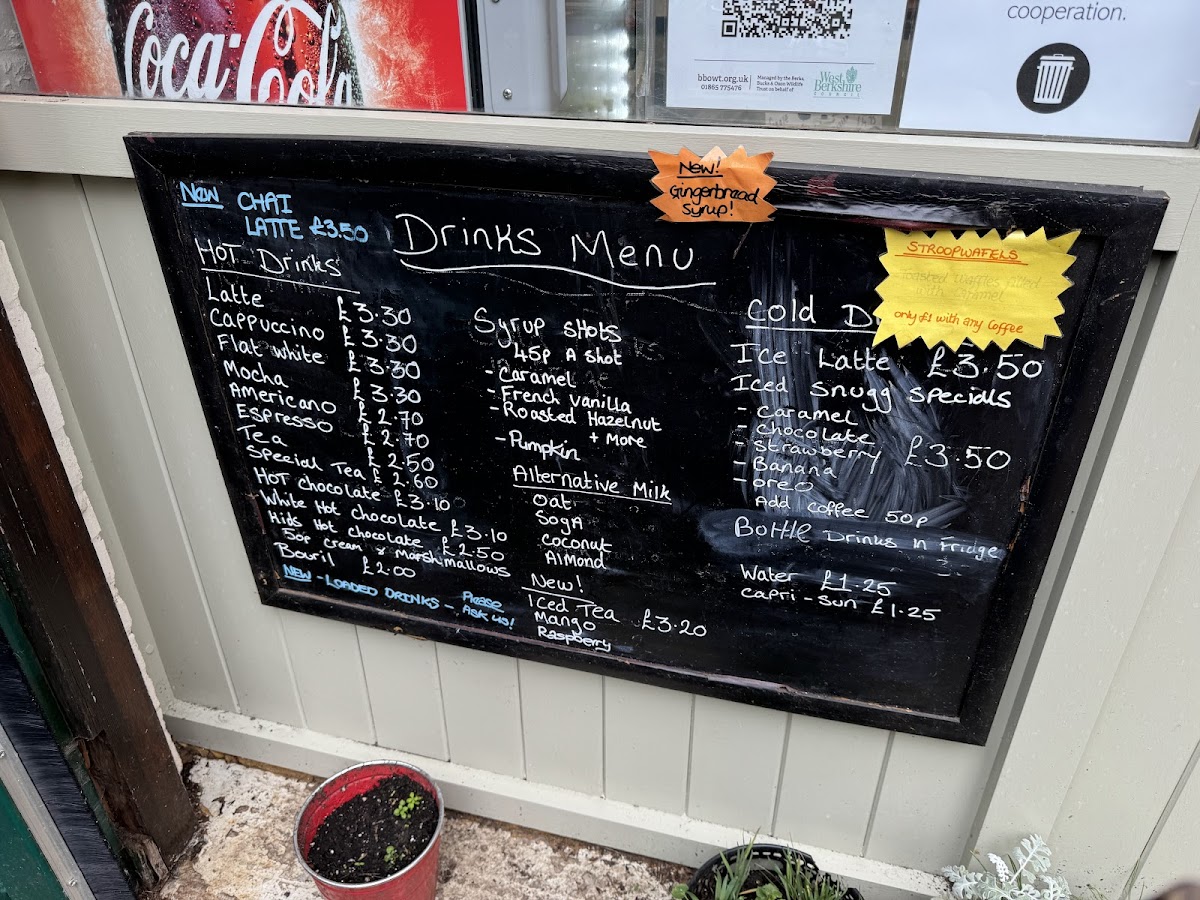 Coca-Cola
bbowt.org.uk
01865 775476
Managed by the Berks,
Bucks & Oxon Wildlife
Trust on behalf of
West
Berkshire
COUNCIL
cooperation.
New!
Gingerbread
Syrup!
STROOPWAFELS
Toasted waffles filled
with caramel
only £1 with any Coffee
New CHAI
LATTE £3.50
Drinks Menu
HOT Drinks
Latte £3.30
Cappuccino £3.30
Flat white £3.30
Mocha £3.30
Americano £2.70
Espresso £2.70
Tea £2.50
Special Tea £2.60
HOT chocolate £3.10
White Hot chocolate £3.10
Kids Hot chocolate £2.50
50p cream & Marshmallows
Bouril £2.00
NEW - LOADED DRINKS - Please
ASK us!
Syrup SHOTS
45p A shot
- Caramel
- French Vanilla
- Roasted Hazelnut
+ More
- Pumpkin
Alternative Milk
Oat
SOYA
Coconut
Almond
New!
Iced Tea £3.20
Mango
Raspberry
Cold D
Ice Latte £3.50
Iced Snugg Specials
- Caramel
- Chocolate
- Strawberry £3.50
- Banana
- Oreo
Add Coffee 50p
Bottle Drinks in Fridge
Water £1.25
Capri-Sun £1.25